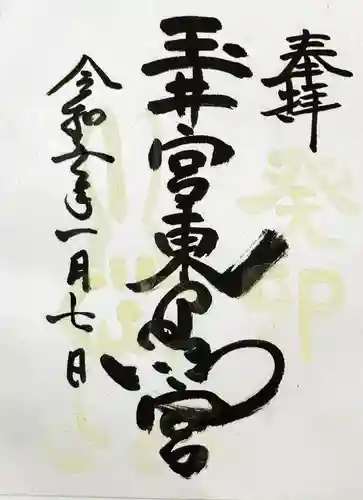 奉拝
玉井宮東照宮
令和六年一月七日